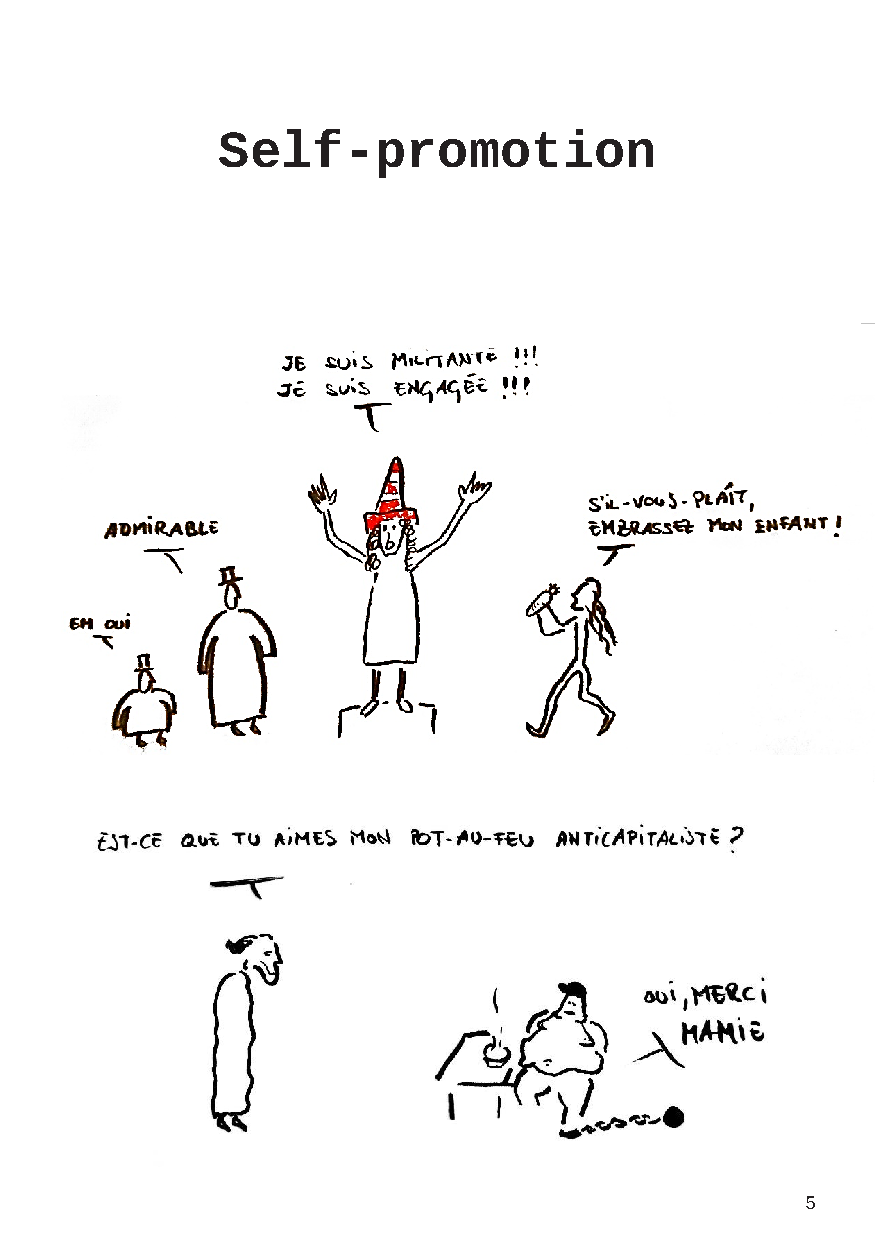 Self-promotion
JE SUIS MILITANTE !!!
JE SUIS ENGAGÉE !!!
S'IL-VOUS-PLAÎT,
EMBRASSEZ MON ENFANT !
ADMIRABLE
EM OUI
EST-CE QUE TU AIMES MON POT-AU-FEU ANTICAPITALISTE ?
OUI, MERCI
MAMIE
5